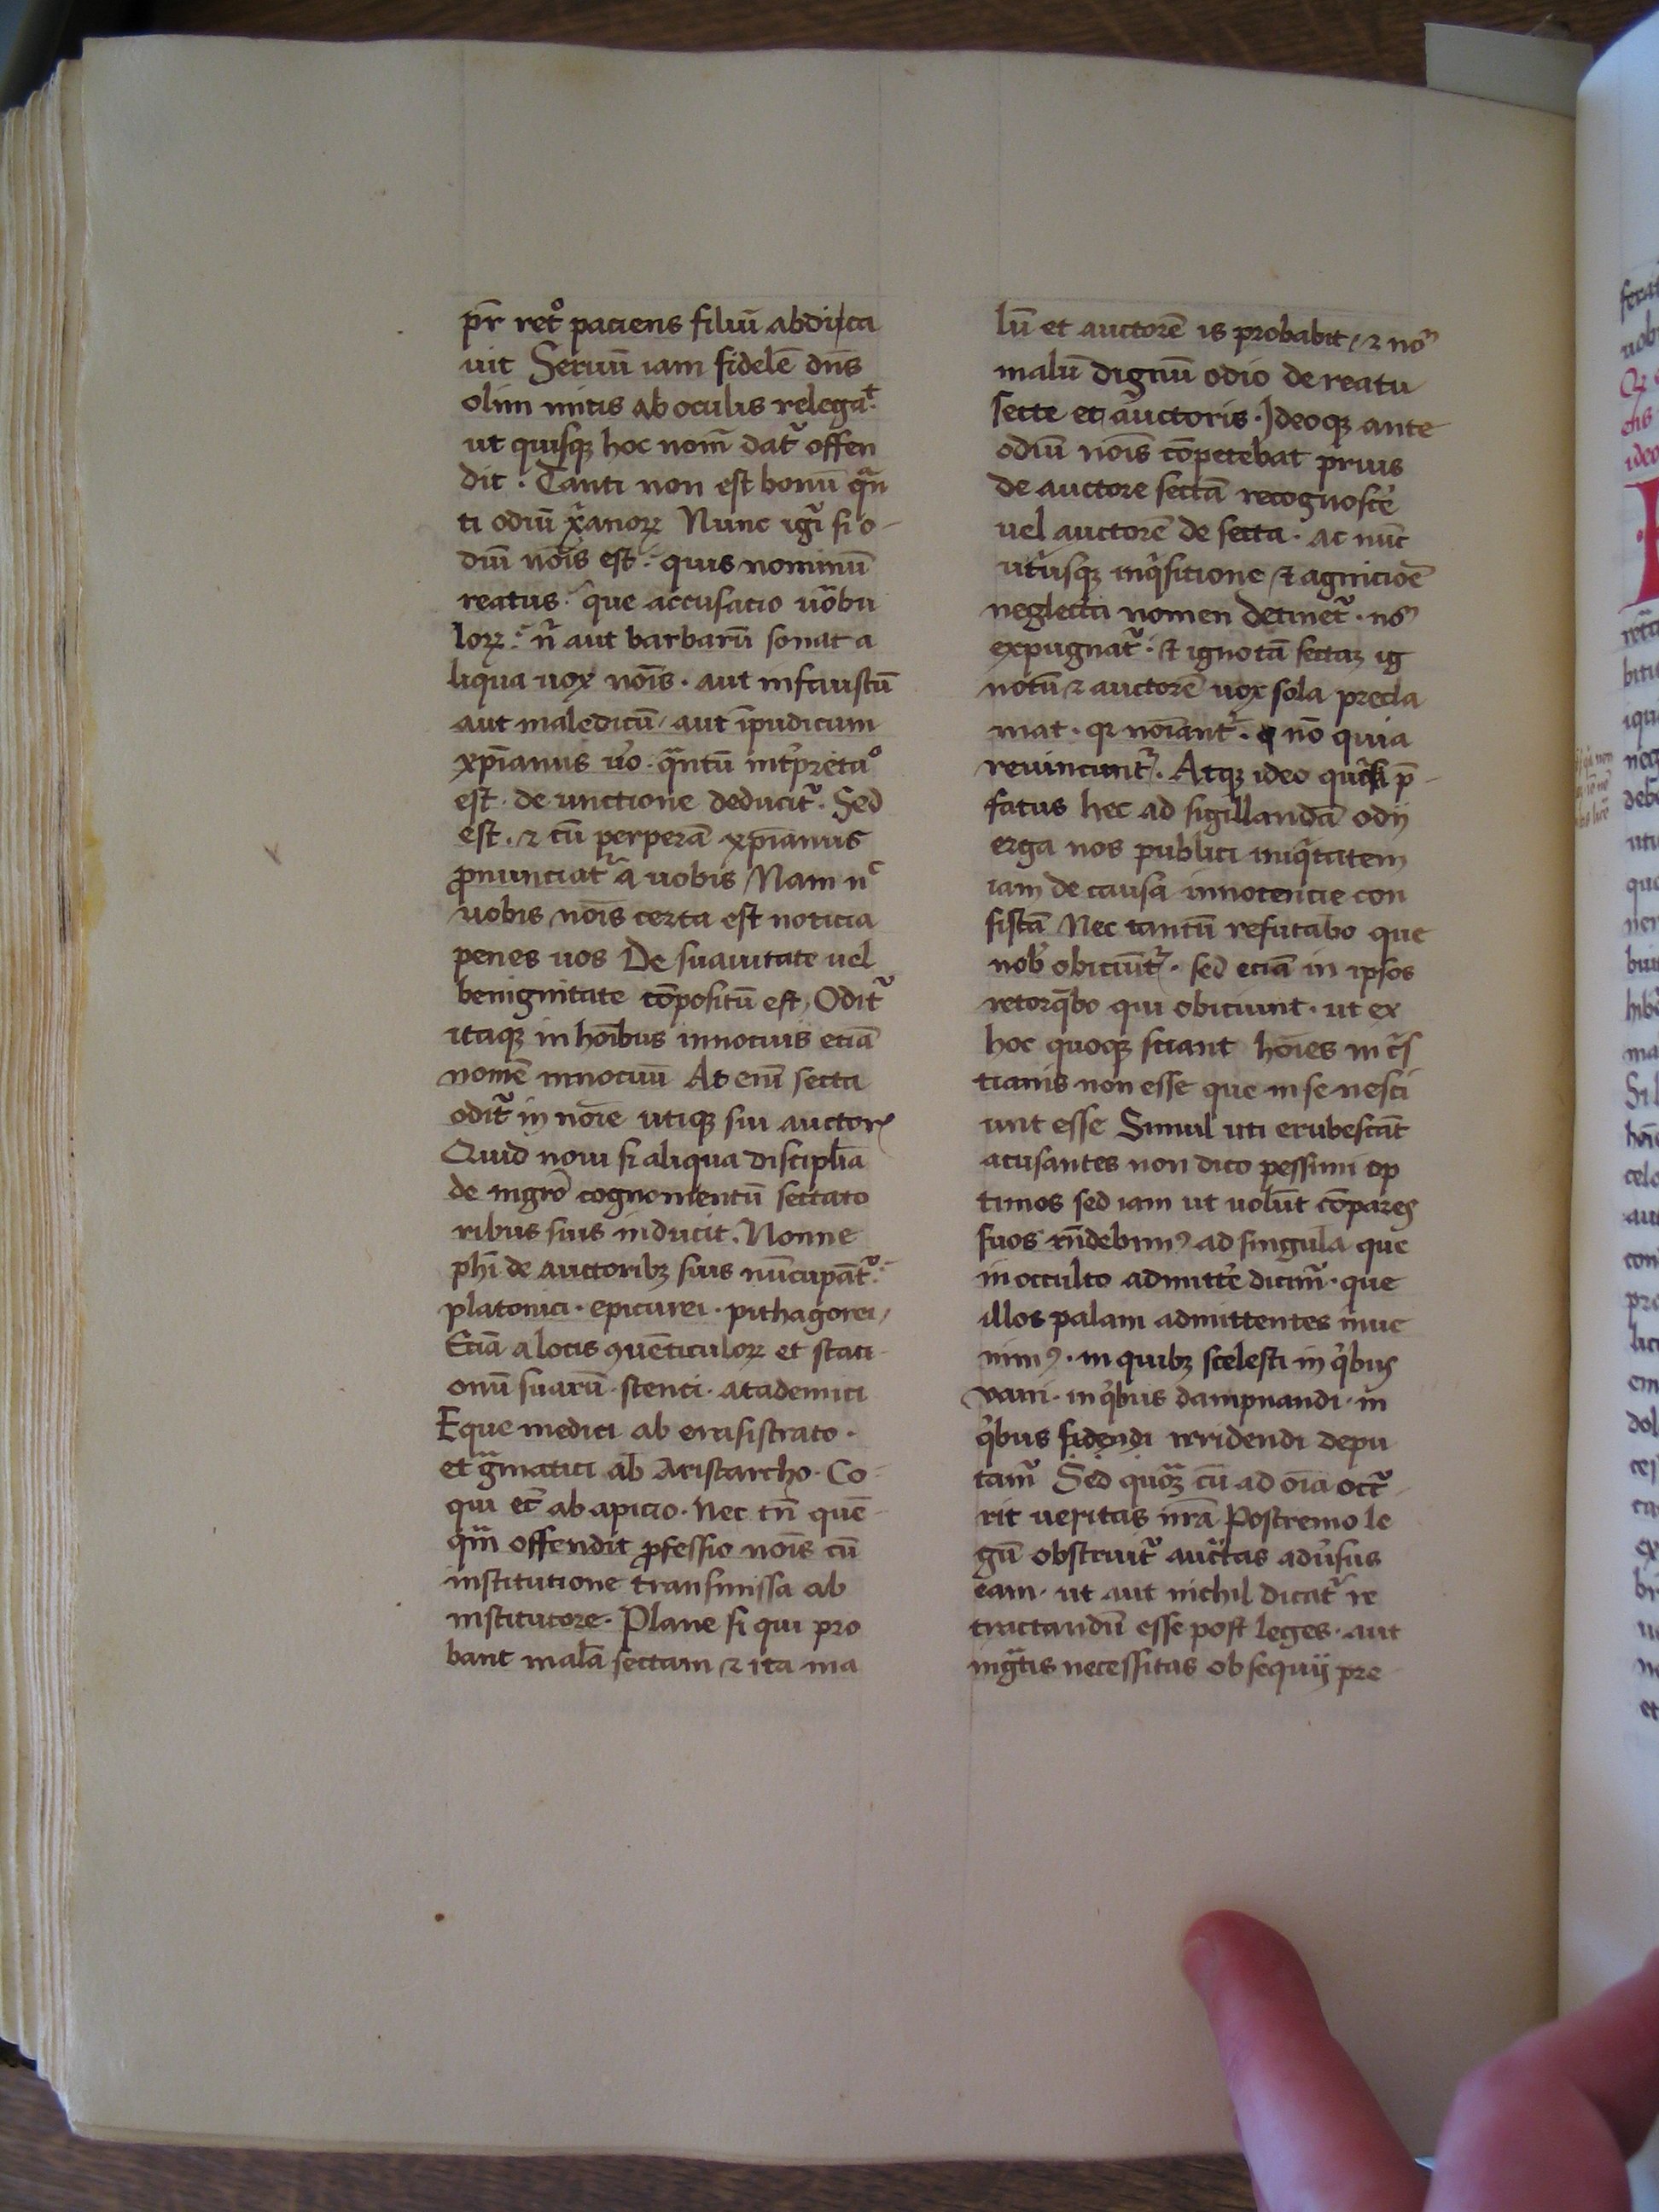 pr̄ ret° paciens filiū abdica
uit Seruū iam fidelē dn̄s
olim mitis ab oculis relegat
ut quisqȝ hoc nom̄ dat᷑ offen
dit. Tanti non est bonū qn̄
ti odiū xānoꝝ Nunc igī si o-
diū nōis est: quis nominū
reatus. que accusacio uōbu
loꝝ: n̄ aut barbarū sonat a
liqua uox nōis. aut infaustū
aut maledicū/ aut īpudicum
xp̄ianus uo. qn̄tū intp̄reta°
est. de unctione deducit᷑. Sed
est. ⁊ cū perperā xp̄ianus
ꝓnunciat᷑ a uobis Nam nc
uobis nōis certa est noticia
penes uos De suauitate uel
benignitate cōpositū est, Odit᷑
itaqȝ in hōibus innocuis eciā
nomē innocuū At enī secta
odit᷑ in nōie utiqȝ sui auctoris
Quid noui si aliqua disciplīa
de mgrō cognomentū sectato
ribus suis inducit. Nonne
phī de auctoribȝ suis nūcupāt᷑:
platonici. epicurei. pithagorei/
Eciā a locis ꝯuēticuloꝝ et staci-
onū suarū. stoici. academici
Eque medici ab erasistrato.
et gr̄matici ab Aristarcho. Co-
qui ec̄ ab apicio. Nec tn̄ quē-
qm̄ offendit ꝓfessio nōis cū
institutione transmissa ab
institutore. Plane si qui pro
bant malā sectam ⁊ ita ma
lū et auctorē is probabit/ ⁊ no
malū dignū odio de reatu
secte et auctoris. Ideoqȝ ante
odiū nōis cōpetebat prius
de auctore sectā recognosce᷑
uel auctorē de secta. ac nūc
utiusqȝ inqisitione ⁊ agnicioē
neglecta nomen detinet᷑. no
expugnat᷑. ⁊ ignotā sectaȝ ig
notū ⁊ auctorē uox sola precla
mat. qr nōiant᷑. nō quia
reuincunt᷑. Atqȝ ideo quasi p̄-
fatus hec ad sigillandā odij
erga nos publici iniqitatem
iam de causa innocencie con
sistā Nec tantū refutabo que
nob obiciūt᷑. sed eciā in ipsos
retorqēbo qui obiciunt. ut ex
hoc quoqȝ sciant hōies in crs
tianis non esse que in se nesci
unt esse Simul uti erubescāt
acusantes non dico pessimi op
timos sed iam ut uolūt cōpares
suos rn̄debimꝰ ad singula que
in occulto admitte᷑ dicim᷑. que
illos palam admittentes inue
nimꝰ. in quibȝ scelesti in qibus
vani. in qibus dampnandi. in
qibus irridendi depu
tam᷑ Sed quoȝ cū ad oīa occ᷑
rit ueritas nrā Postremo le
gū obstruit᷑ auctas aduersus
eam. ut aut nichil dicat᷑ re
tractandū esse post leges. aut
ingratis necessitas obsequij pre